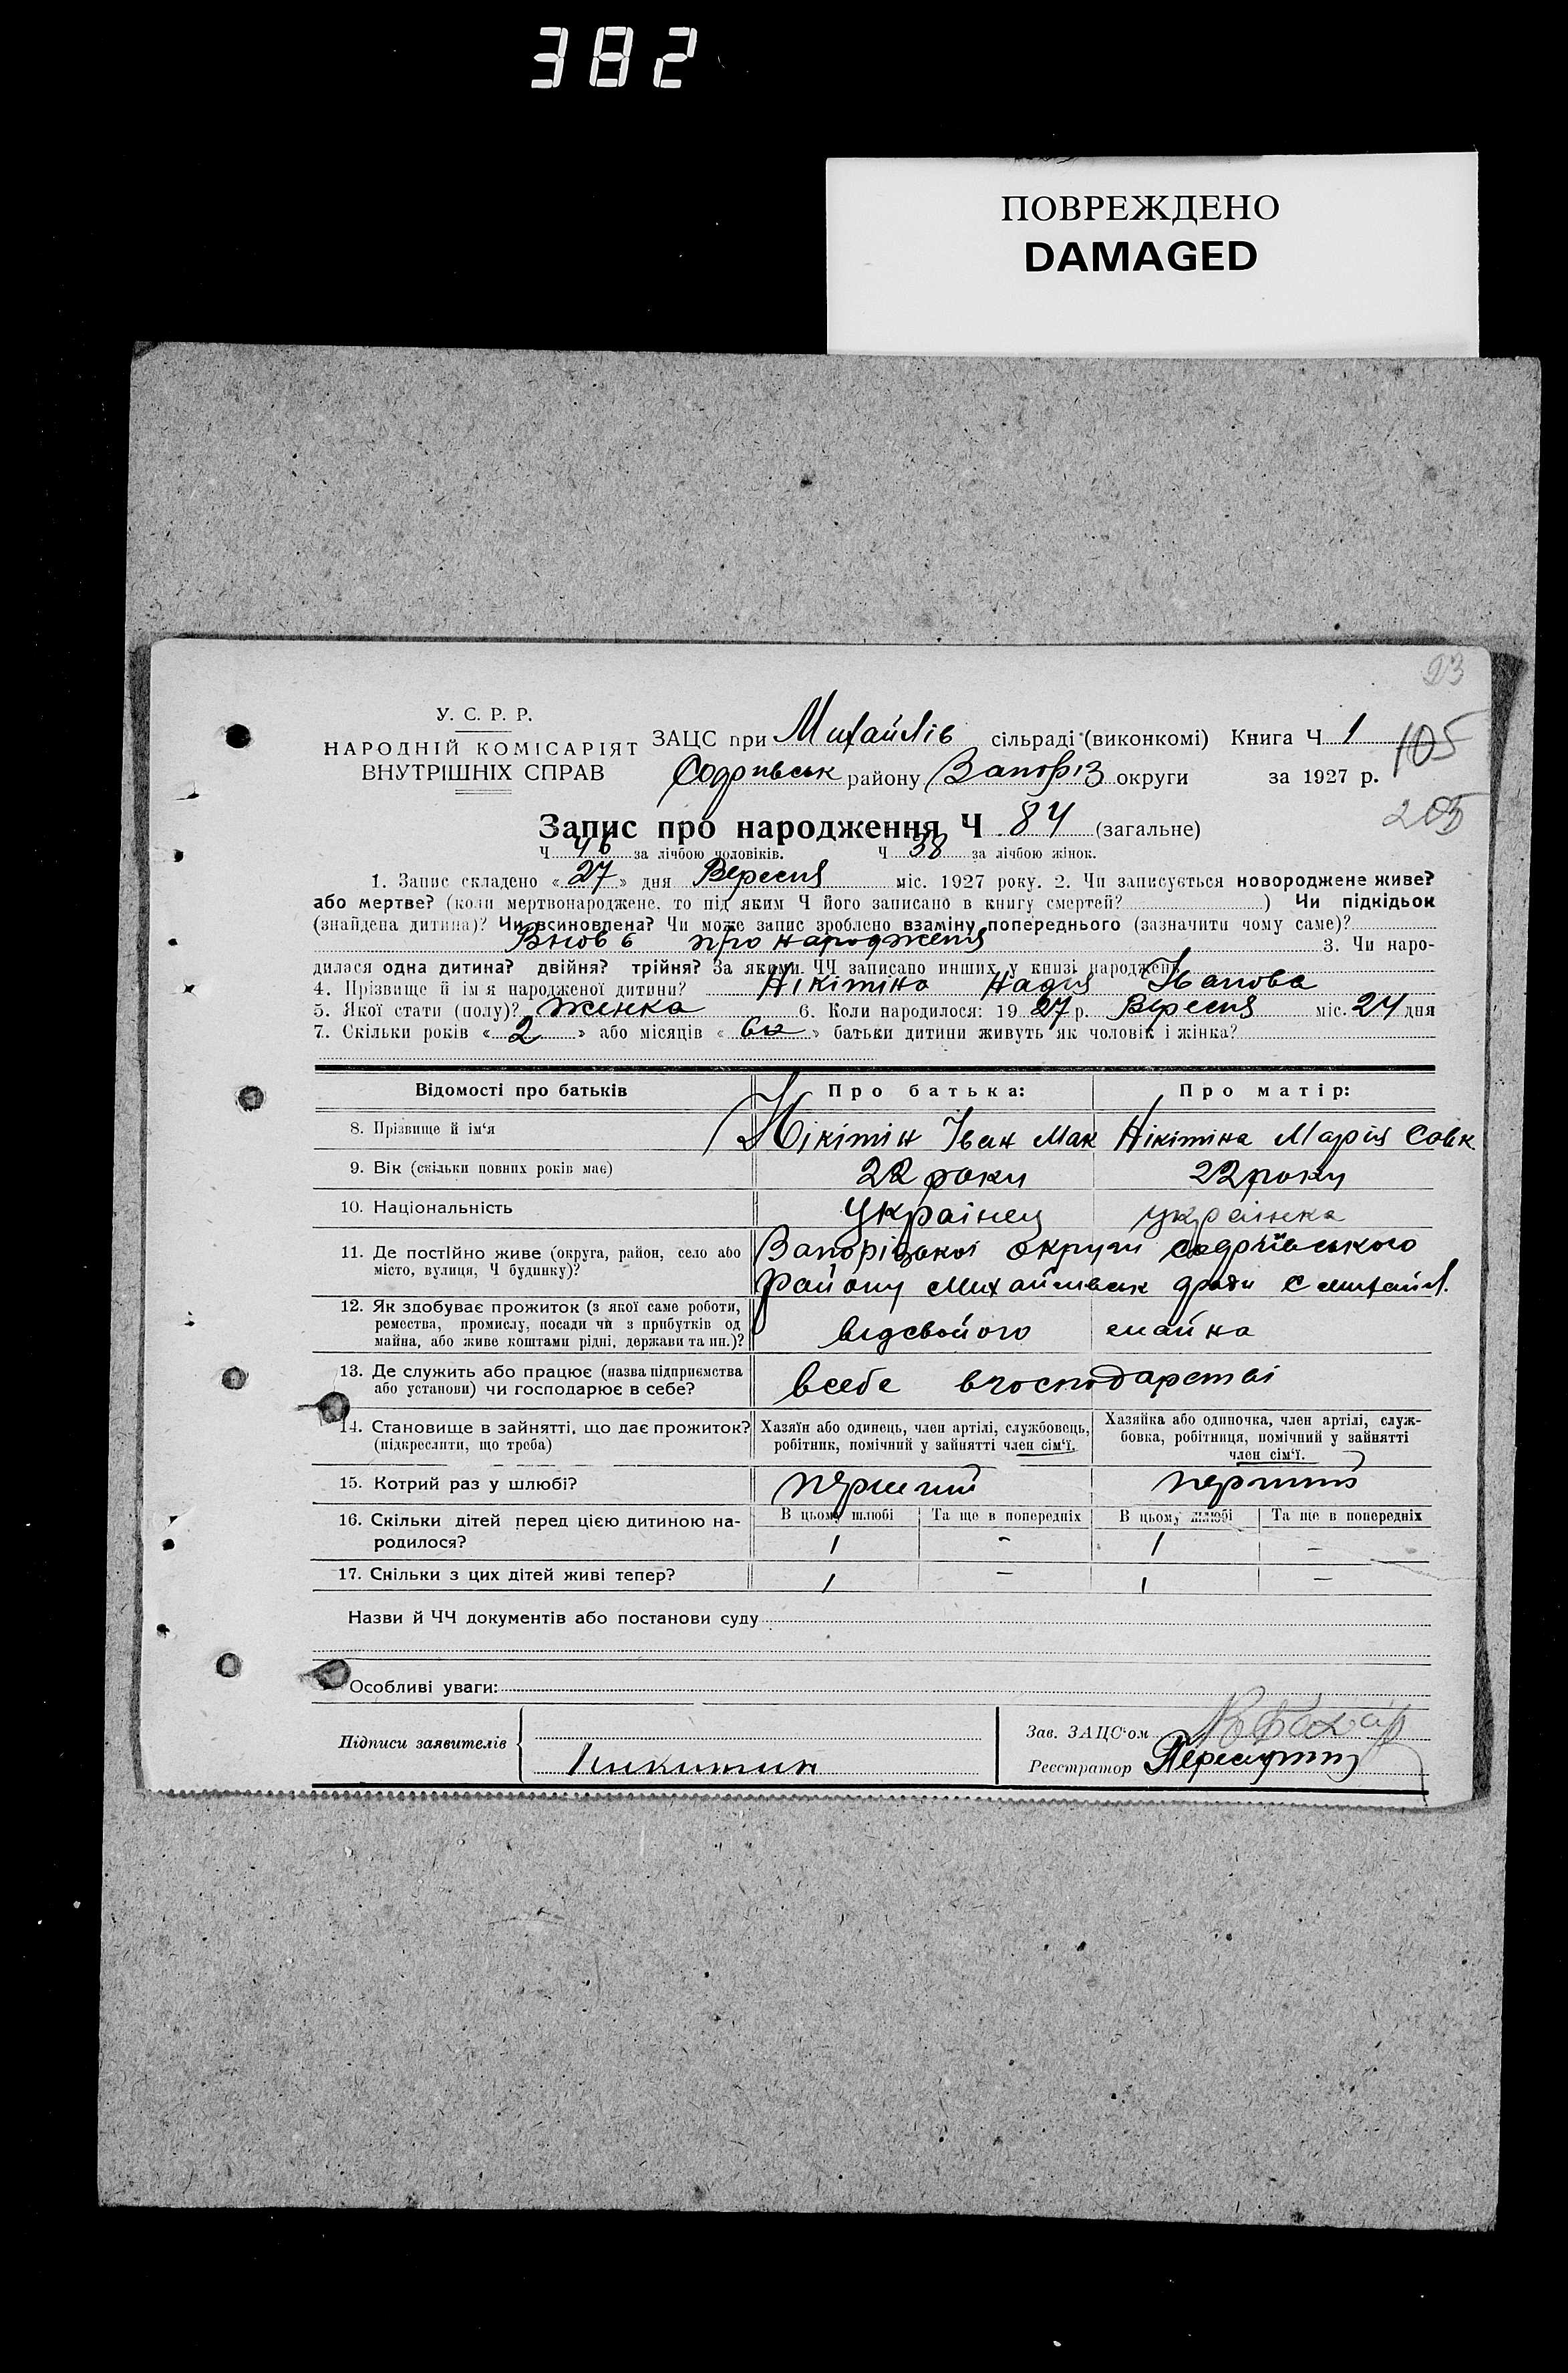 382
ПОВРЕЖДЕНО
DAMAGED
23
У. С. Р. Р.
НАРОДНІЙ КОМІСАРІЯТ
ВНУТРІШНІХ СПРАВ
ЗАЦС при Михайлів сільраді (виконкомі) Книга Ч. 1
105
району Запоріз округи за 1927 р.
205
Запис про народження Ч 84 (загальне)
Ч 46 за лічбою чоловіків. Ч 38 за лічбою жінок.
1. Запис складено «27» дня Вересня міс. 1927 року. 2. Чи записується новороджене живе?
або мертве? (коли мертвонароджене, то під яким Ч його записано в книгу смертей? ) Чи підкідьок
(знайдена дитина)? Чи всиновлена? Чи може запис зроблено взаміну попереднього (зазначити чому саме)?
Вновь про народженя 3. Чи наро-
дилася одна дитина? двійня? трійня? За якими ЧЧ записано инших у книзі народжень
4. Прізвище й ім'я народженої дитини? Нікітіна Надія Іванова
5. Якої стати (полу)? Женка 6. Коли народилося: 1927 р. Вересня міс. 24 дня
7. Скільки років «2» або місяців « » батьки дитини живуть як чоловік і жінка?
Відомості про батьків Про батька: Про матір:
8. Прізвище й ім'я Нікітін Іван Мак Нікітіна Марія Савк
9. Вік (скільки повних років має) 22 роки 22 роки
10. Національність Українец українка
11. Де постійно живе (округа, район, село або Запорізької округи
місто, вулиця, Ч будинку)? Району Михайлівськ ради С Михайл.
12. Як здобуває прожиток (з якої саме роботи,
ремества, промислу, посади чи з прибутків од
майна, або живе коштами рідні, держави та ин.)? відсвойого майна
13. Де служить або працює (назва підприємства
або установи) чи господарює в себе? всебе вгосподарстві
14. Становище в зайнятті, що дає прожиток? Хазяїн або одинець, член артілі, службовець, Хазяйка або одиночка, член артілі, служ-
(підкреслити, що треба) робітник, помічний у зайнятті член сім'ї. бовка, робітниця, помічний у зайнятті
член сім'ї.
15. Котрий раз у шлюбі? перший перший
16. Скільки дітей перед цією дитиною на- В цьому шлюбі Та ще в попередніх В цьому шлюбі Та ще в попередніх
родилося? 1 - 1 -
17. Скільки з цих дітей живі тепер? 1 - 1 -
Назви й ЧЧ документів або постанови суду
Особливі уваги:
Підписи заявителів
Никитин
Зав. ЗАЦС'ом
Реєстратор